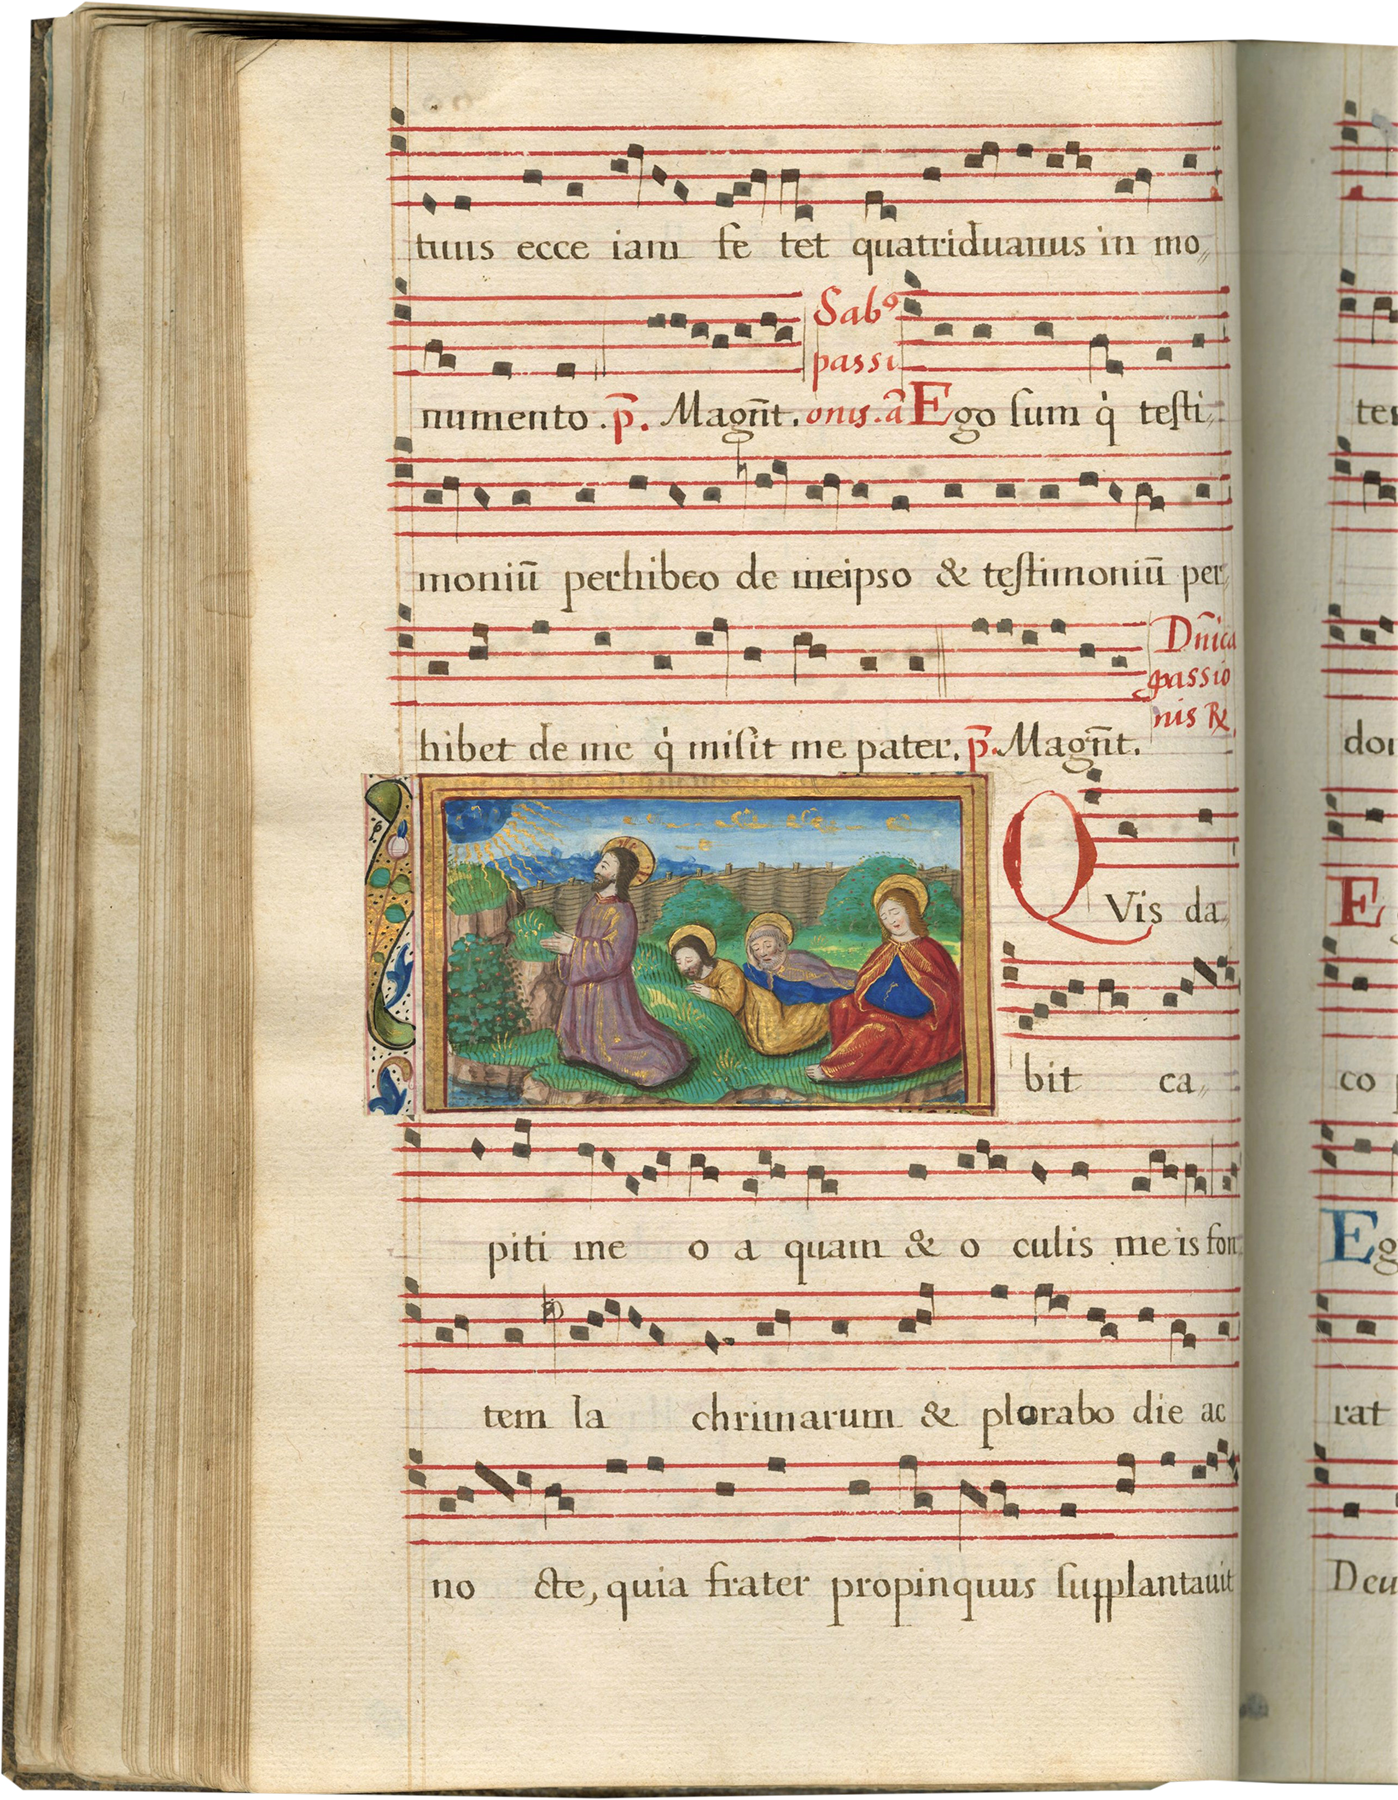 tuus ecce iam fe tet quatriduanus in mo
Sabº
passi
numento . p̄. Magn̄t. onis. ā Ego sum q̇ testi
moniū perhibeo de meipso & testimoniū per
Dn̄ica
passio
nis ℟
hibet de me q̇ misit me pater. p̄. Magn̄t.
QVis da
bit ca
piti me o a quam & o culis me is fon
tem la chrimarum & plorabo die ac
no cte, quia frater propinquus supplantauit
ter
doi
E
co
Eg
rat
Deu